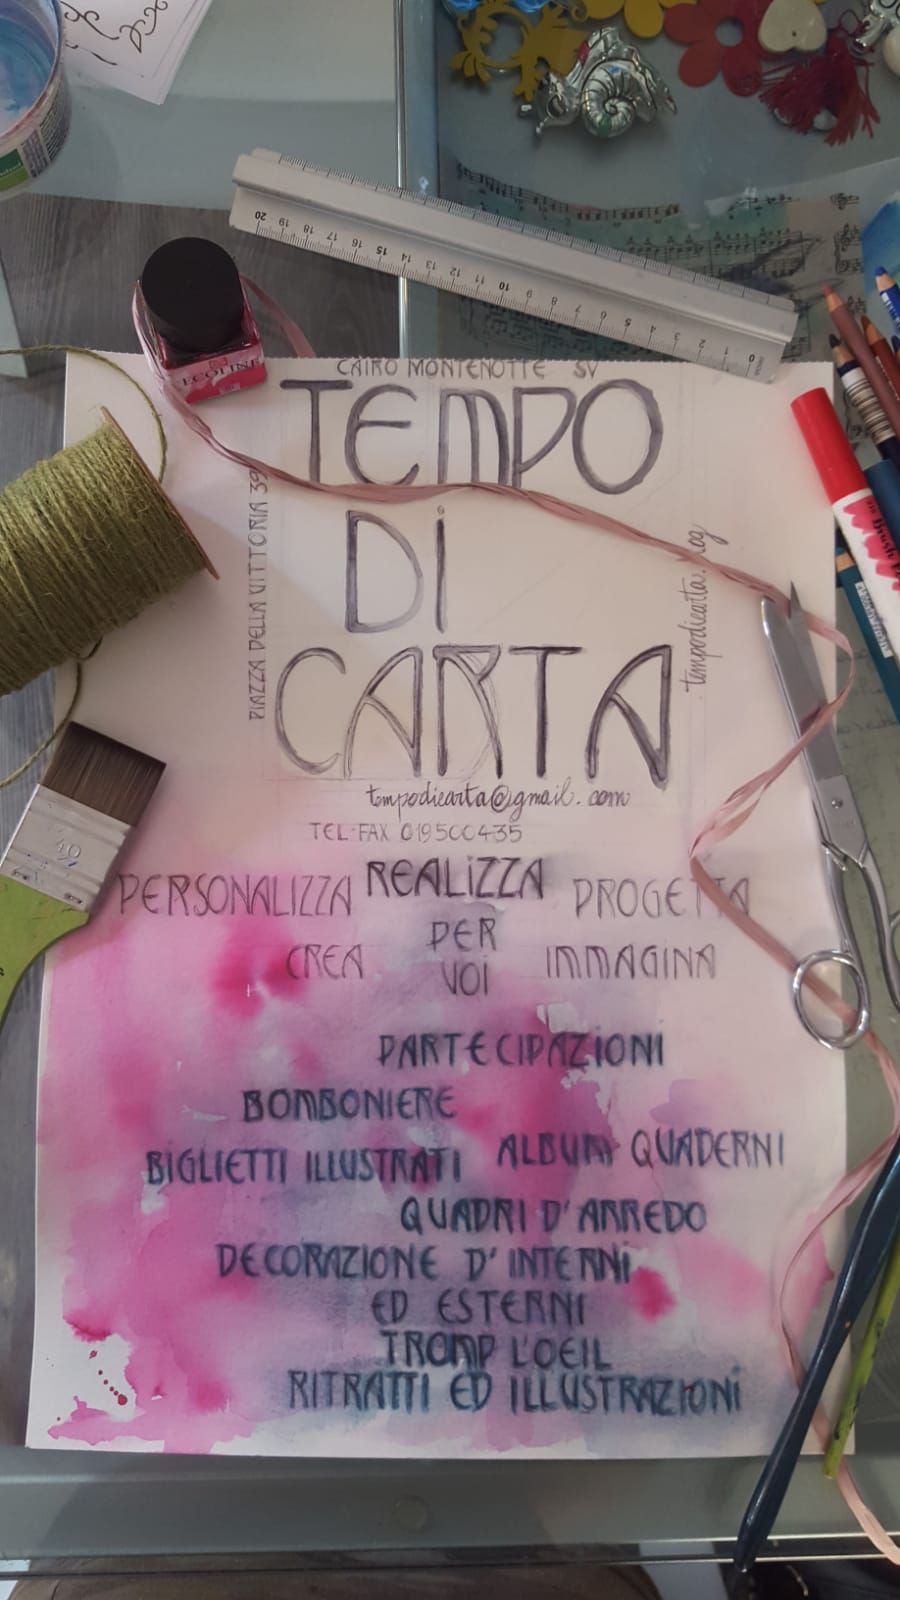 20 19 18 17 16 15 14 13 12 11 10 9 8 7 6 5 4 3 2 1 0
ECOLINE
CAIRO MONTENOTTE SV
TEMPO
Di
CARTA
PIAZZA DELLA VITTORIA 39
tempodicarta.
tempodicarta@gmail.com
TEL-FAX 019500435
PERSONALIZZA REALIZZA PROGETTA
CREA PER VOI IMMAGINA
PARTECIPAZIONI
BOMBONIERE
BIGLIETTI ILLUSTRATI ALBUM QUADERNI
QUADRI D'ARREDO
DECORAZIONE D'INTERNI
ED ESTERNI
TROMP L'OEIL
RITRATTI ED ILLUSTRAZIONI
40
Brush